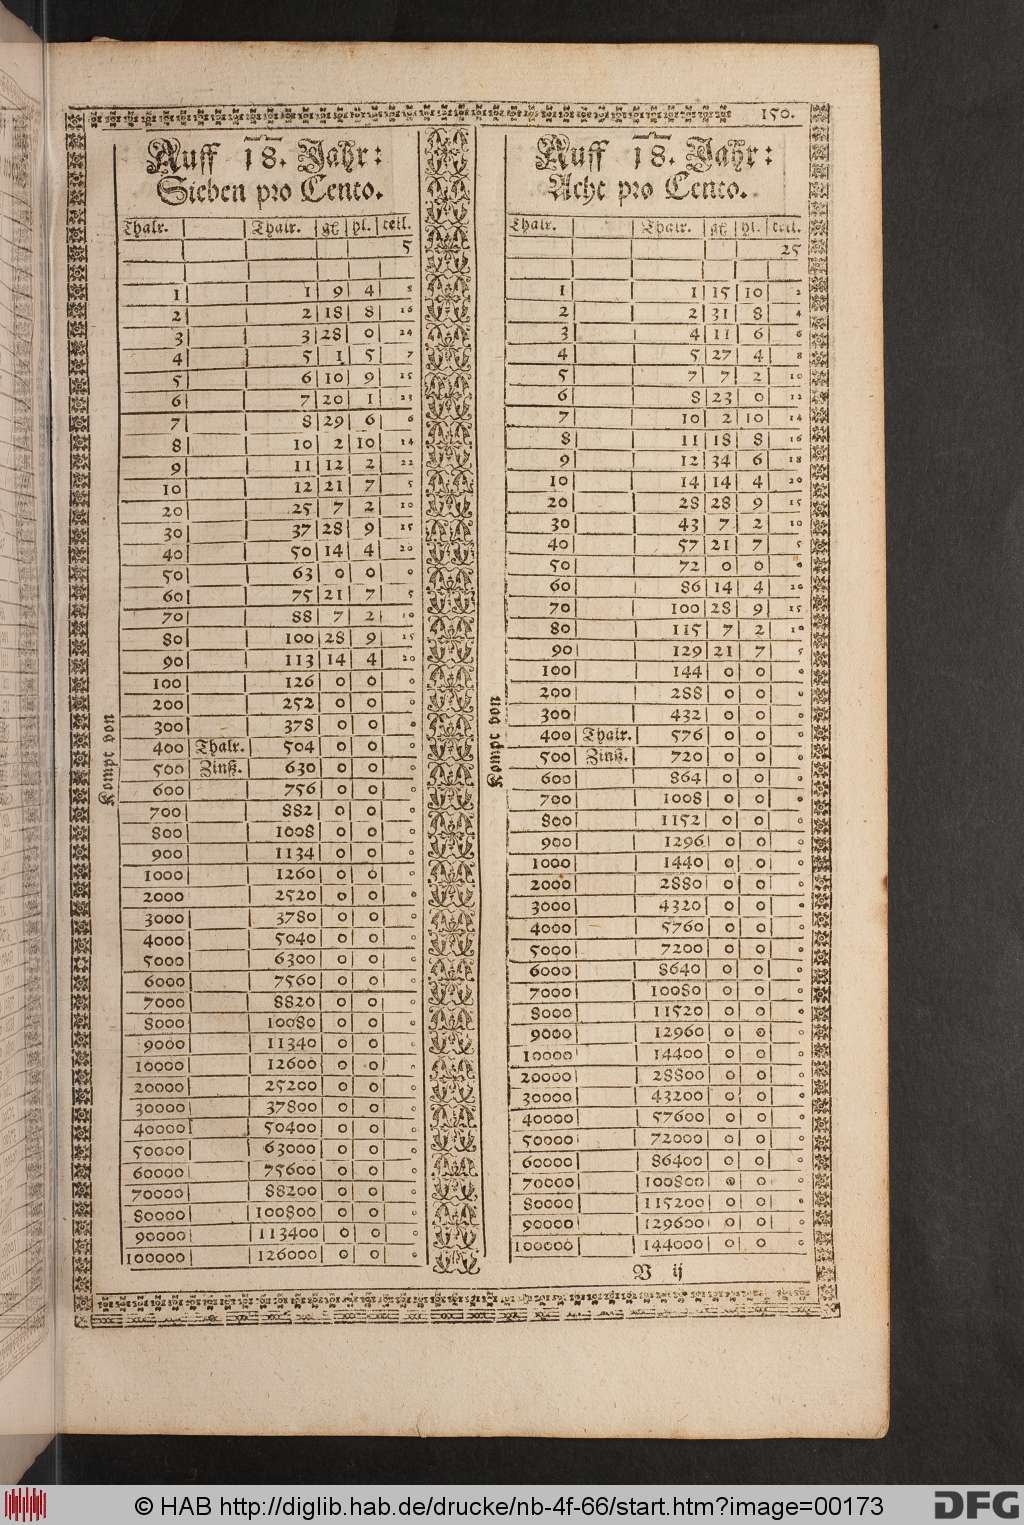 150.
Auff 18. Jahr:
Sieben pro Cento.
Thalr. Thalr. gl hl. teil.
5
1 1 9 4 8
2 2 18 8 16
3 3 28 0 24
4 5 1 5 7
5 6 10 9 15
6 7 20 1 23
7 8 29 6 6
8 10 2 10 14
9 11 12 2 22
10 12 21 7 5
20 25 7 2 10
30 37 28 9 15
40 50 14 4 20
50 63 0 0 0
60 75 21 7 5
70 88 7 2 10
80 100 28 9 15
90 113 14 4 20
100 126 0 0 0
200 252 0 0 0
300 378 0 0 0
400 Thalr. 504 0 0 0
500 Zinß. 630 0 0 0
600 756 0 0 0
700 882 0 0 0
800 1008 0 0 0
900 1134 0 0 0
1000 1260 0 0 0
2000 2520 0 0 0
3000 3780 0 0 0
4000 5040 0 0 0
5000 6300 0 0 0
6000 7560 0 0 0
7000 8820 0 0 0
8000 10080 0 0 0
9000 11340 0 0 0
10000 12600 0 0 0
20000 25200 0 0 0
30000 37800 0 0 0
40000 50400 0 0 0
50000 63000 0 0 0
60000 75600 0 0 0
70000 88200 0 0 0
80000 100800 0 0 0
90000 113400 0 0 0
100000 126000 0 0 0
Kompt von
Auff 18. Jahr:
Acht pro Cento.
Thalr. Thalr. gl hl. teil.
25
1 1 15 10 2
2 2 31 8 4
3 4 11 6 6
4 5 27 4 8
5 7 7 2 10
6 8 23 0 12
7 10 2 10 14
8 11 18 8 16
9 12 34 6 18
10 14 14 4 20
20 28 28 9 15
30 43 7 2 10
40 57 21 7 5
50 72 0 0 0
60 86 14 4 20
70 100 28 9 15
80 115 7 2 10
90 129 21 7 5
100 144 0 0 0
200 288 0 0 0
300 432 0 0 0
400 Thalr. 576 0 0 0
500 Zinß. 720 0 0 0
600 864 0 0 0
700 1008 0 0 0
800 1152 0 0 0
900 1296 0 0 0
1000 1440 0 0 0
2000 2880 0 0 0
3000 4320 0 0 0
4000 5760 0 0 0
5000 7200 0 0 0
6000 8640 0 0 0
7000 10080 0 0 0
8000 11520 0 0 0
9000 12960 0 0 0
10000 14400 0 0 0
20000 28800 0 0 0
30000 43200 0 0 0
40000 57600 0 0 0
50000 72000 0 0 0
60000 86400 0 0 0
70000 100800 0 0 0
80000 115200 0 0 0
90000 129600 0 0 0
100000 144000 0 0 0
Kompt von
V ij
© HAB http://diglib.hab.de/drucke/nb-4f-66/start.htm?image=00173
DFG